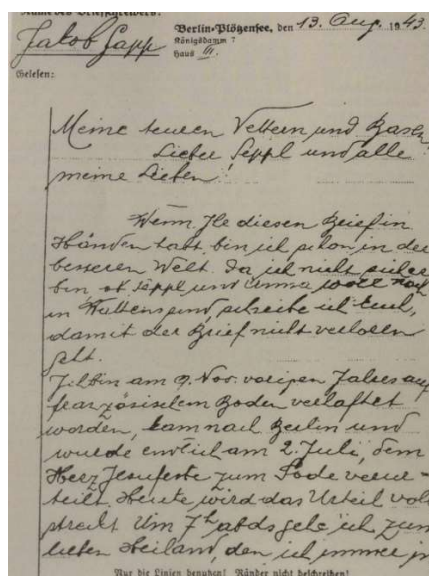 Name des Briefschreibers:
Jakob Gapp
Berlin-Plötzensee, den 13. Aug. 1943.
Königsdamm 7
Haus III.
Gelesen:
Meine teuren Vettern und Basen,
Lieber Seppl und alle
meine Lieben!
Wenn Ihr diesen Brief in
Händen habt bin ich schon in der
besseren Welt. Da ich nicht sicher
bin ob Seppl und wohl noch
in Wattens sind, schreibe ich Euch,
damit der Brief nicht verloren
geht.
Ich bin am 9. Nov. vorigen Jahres auf
französischem Boden verhaftet
worden, kam nach Berlin und
wurde endlich am 2. Juli, dem
Herz Jesufeste zum Tode verur-
teilt. Heute wird das Urteil voll-
streckt. Um 7h abds gehe ich zum
lieben Heiland, den ich immer in
Nur die Linien benutzen! Ränder nicht beschreiben!